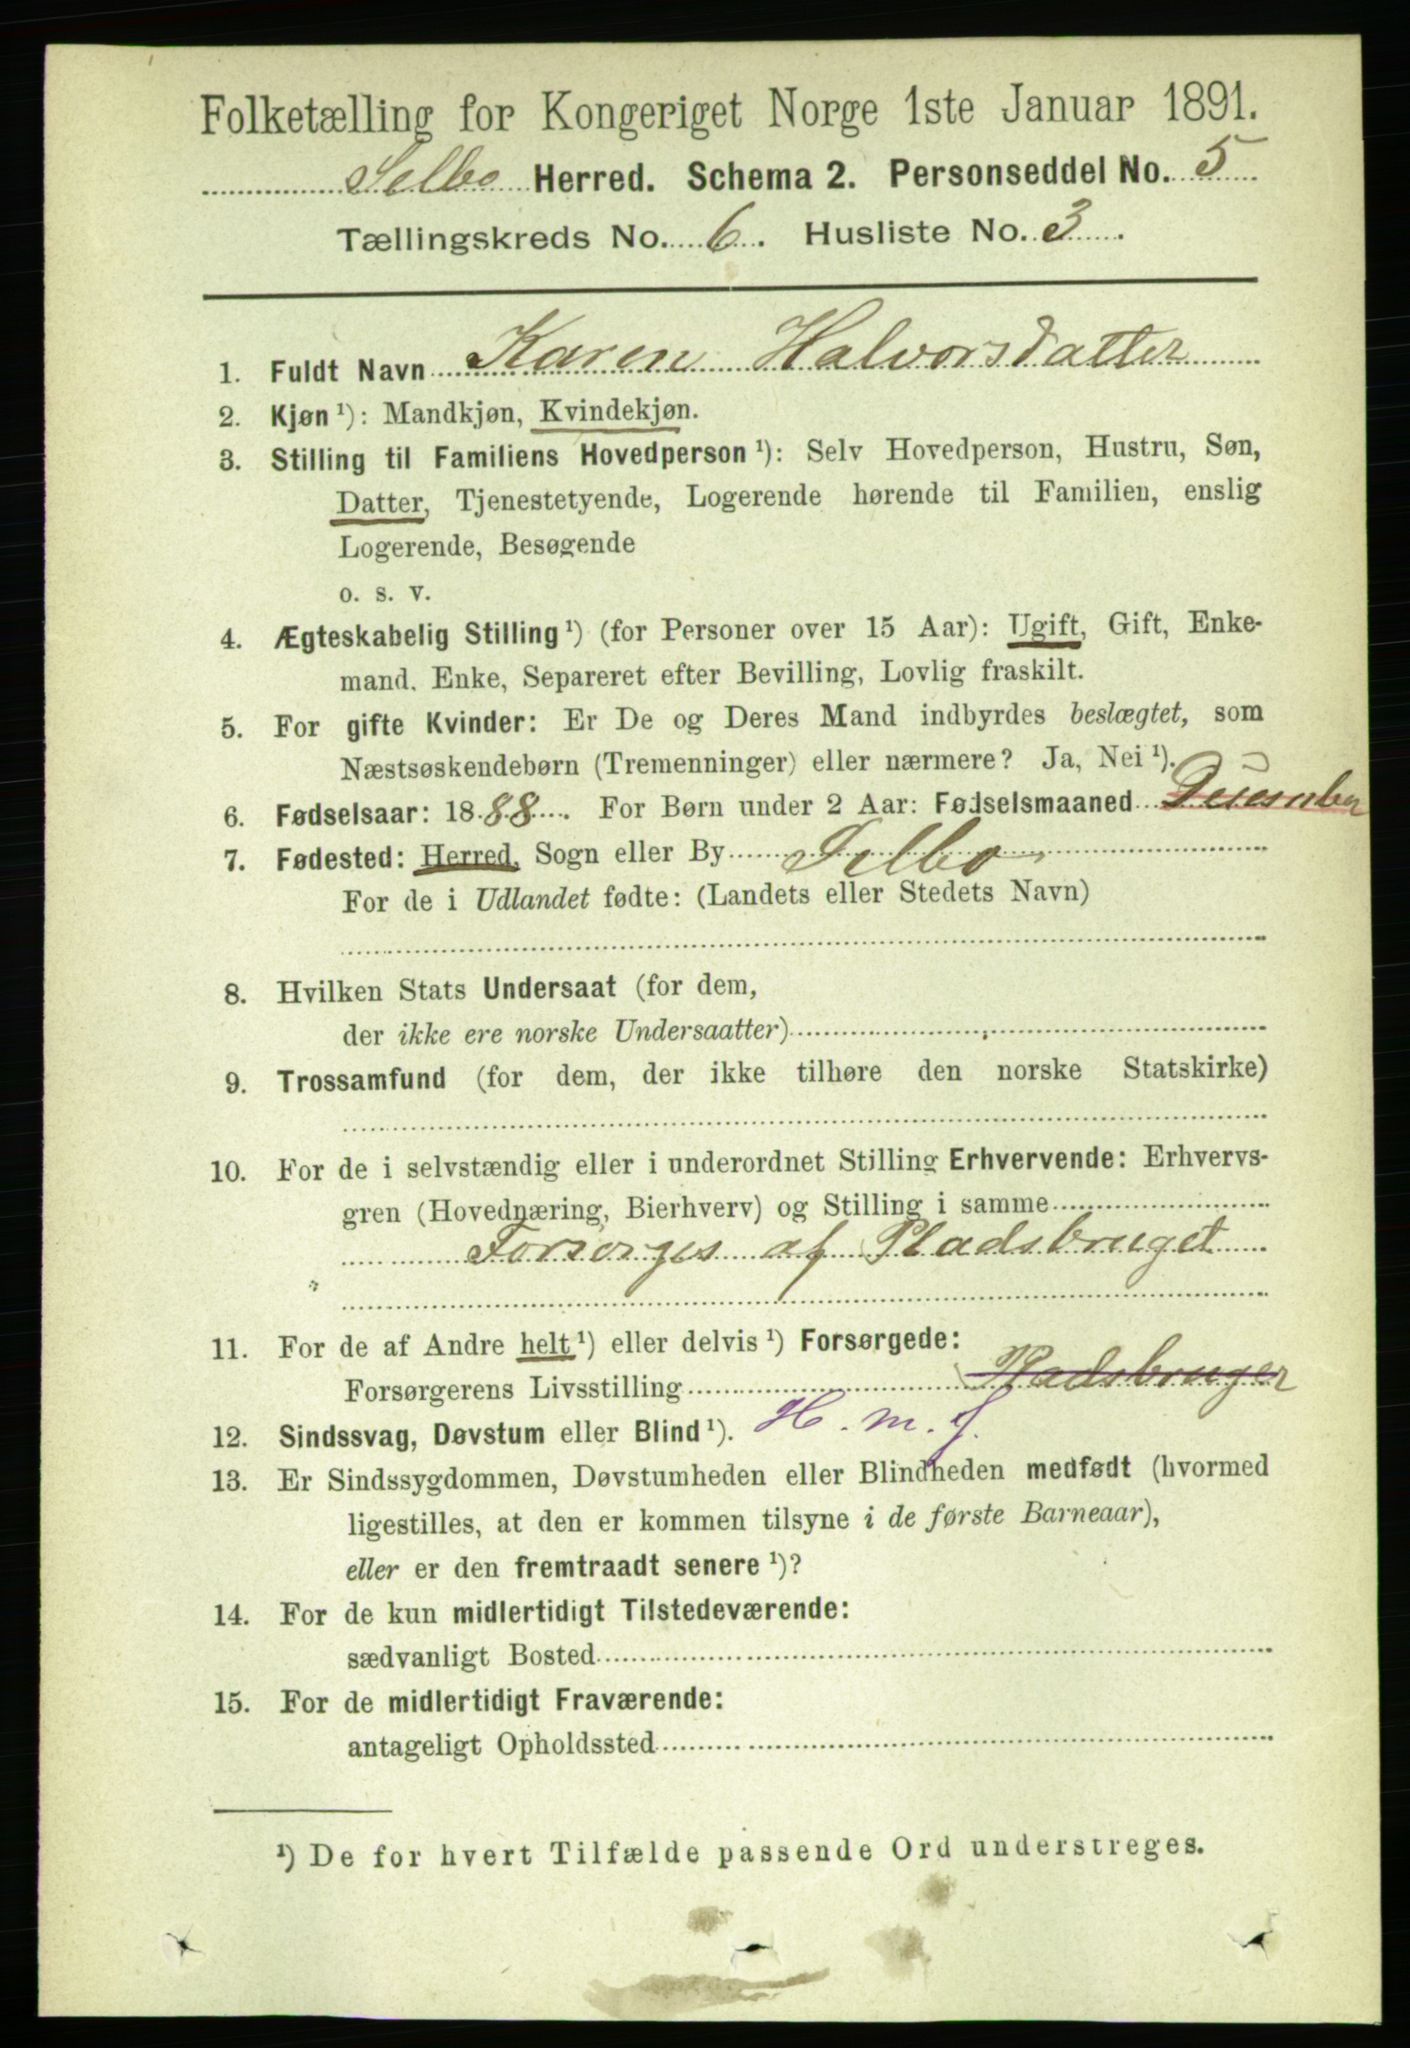 Folketælling for Kongeriget Norge 1ste Januar 1891.
Selbo Herred. Schema 2. Personseddel No. 5
Tællingskreds No. 6. Husliste No. 3.
1. Fuldt Navn Karen Halvorsdatter
2. Kjøn ¹): Mandkjøn, Kvindekjøn.
3. Stilling til Familiens Hovedperson ¹): Selv Hovedperson, Hustru, Søn,
Datter, Tjenestetyende, Logerende hørende til Familien, enslig
Logerende, Besøgende
o. s. v.
4. Ægteskabelig Stilling ¹) (for Personer over 15 Aar): Ugift, Gift, Enke-
mand. Enke, Separeret efter Bevilling, Lovlig fraskilt.
5. For gifte Kvinder: Er De og Deres Mand indbyrdes beslægtet, som
Næstsøskendebørn (Tremenninger) eller nærmere? Ja, Nei ¹).
6. Fødselsaar: 1888. For Børn under 2 Aar: Fødselsmaaned December
7. Fødested: Herred, Sogn eller By Selbo
For de i Udlandet fødte: (Landets eller Stedets Navn)
8. Hvilken Stats Undersaat (for dem,
der ikke ere norske Undersaatter)
9. Trossamfund (for dem, der ikke tilhøre den norske Statskirke)
10. For de i selvstændig eller i underordnet Stilling Erhvervende: Erhvervs-
gren (Hovednæring, Bierhverv) og Stilling i samme
Forsörges af Pladsbruget
11. For de af Andre helt ¹) eller delvis ¹) Forsørgede:
Forsørgerens Livsstilling Pladsbruger
12. Sindssvag, Døvstum eller Blind ¹). H. m. f.
13. Er Sindssygdommen, Døvstumheden eller Blindheden medfødt (hvormed
ligestilles, at den er kommen tilsyne i de første Barneaar),
eller er den fremtraadt senere ¹)?
14. For de kun midlertidigt Tilstedeværende:
sædvanligt Bosted
15. For de midlertidigt Fraværende:
antageligt Opholdssted
¹) De for hvert Tilfælde passende Ord understreges.